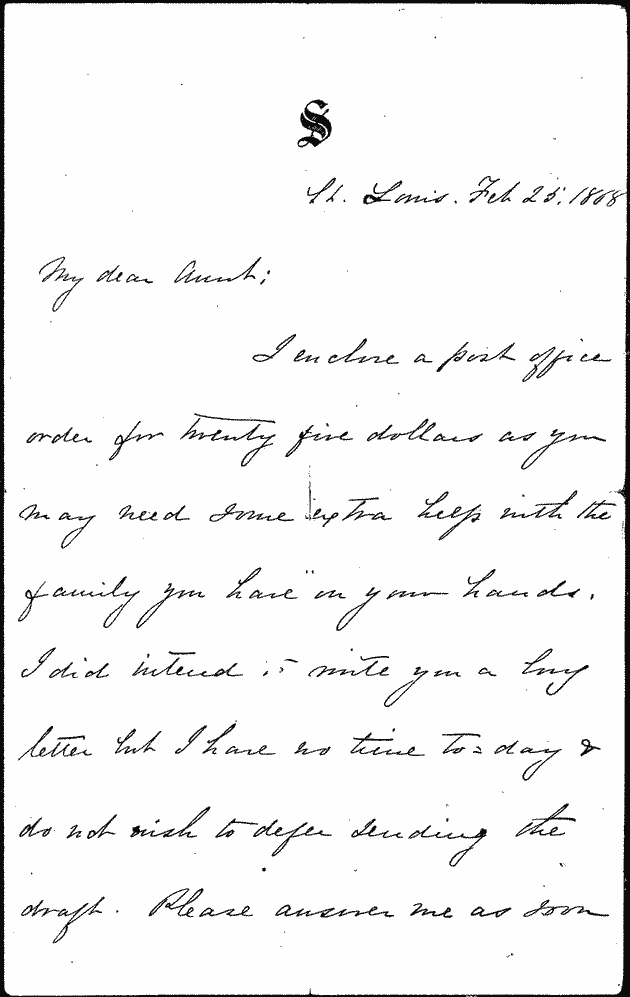 S
St. Louis. Feb 25. 1868
My dear Aunt;
I enclose a post office
order for twenty five dollars as you
may need some extra help with the
family you have on your hands.
I did intend to write you a long
letter but I have no time to=day &
do not wish to defer sending the
draft. Please answer me as soon